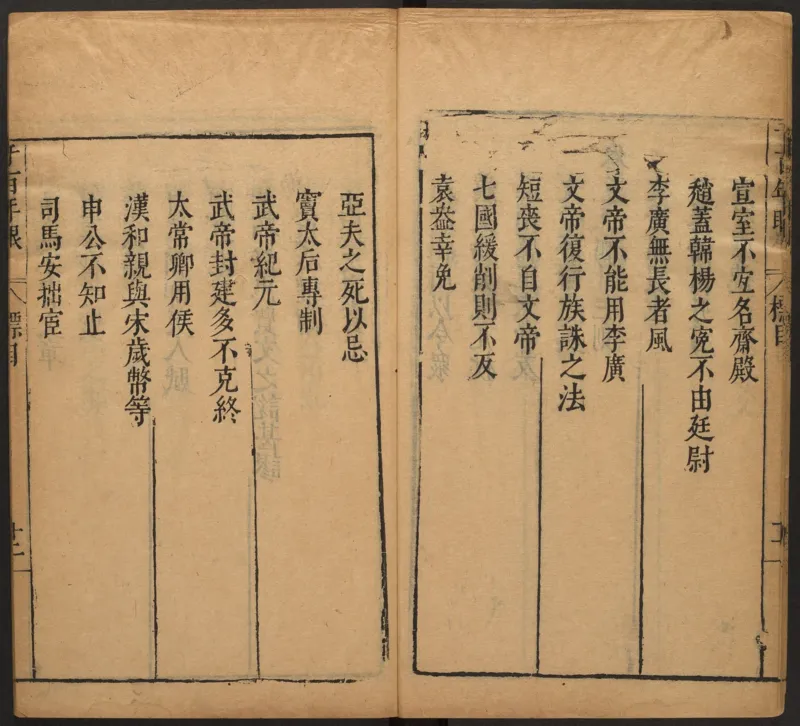 宣室不宜名齋殿
趙蓋韓楊之冤不由廷尉
李廣無長者風
文帝不能用李廣
文帝復行族誅之法
短喪不自文帝
七國緩削則不反
袁盎幸免
亞夫之死以忌
竇太后專制
武帝紀元
武帝封建多不克終
太常卿用侯
漢和親與宋歲幣等
申公不知止
司馬安拙宦
千百年眼
標目
十二